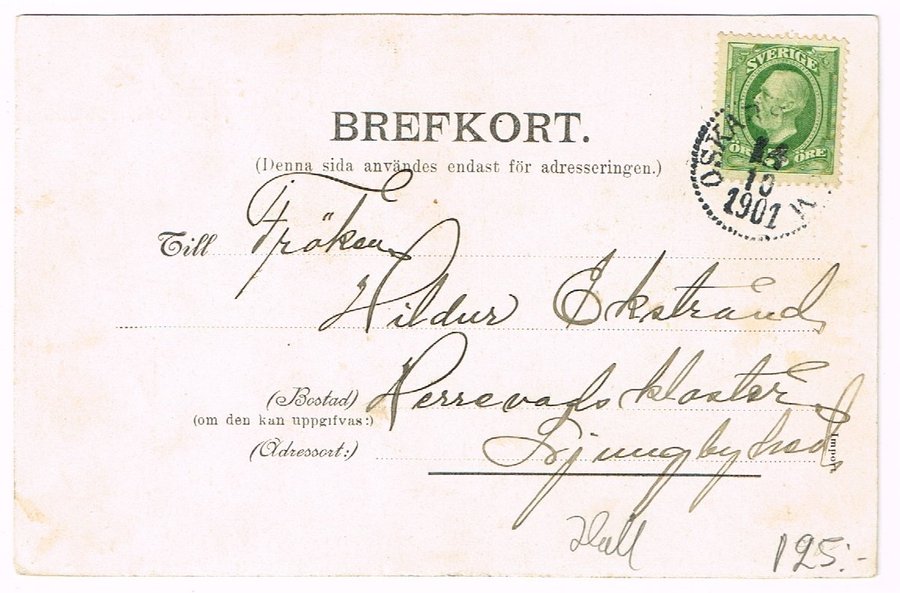 SVERIGE
ÖRE ÖRE
OSKAR
14
10
1901
BREFKORT.
(Denna sida användes endast för adresseringen.)
Till Fröken
Hildur Ekstrand
(Bostad) Herrevadskloster
(om den kan uppgifvas:)
(Adressort:) Ljungbyhed
Import
Hall
125:-